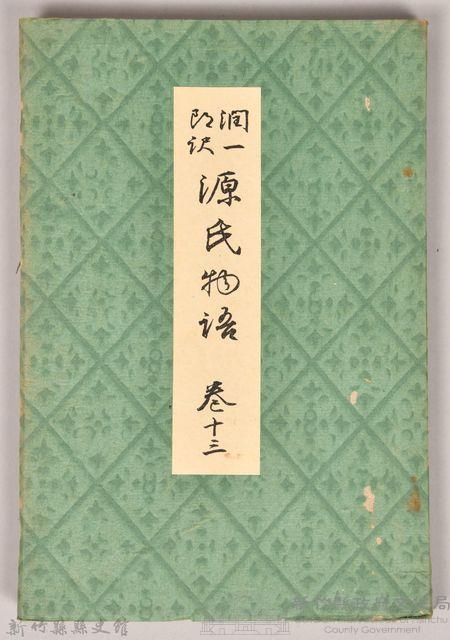 潤一
郎訳
源氏物語 巻十三
新竹縣縣史館
新竹縣政府文化局
County Government